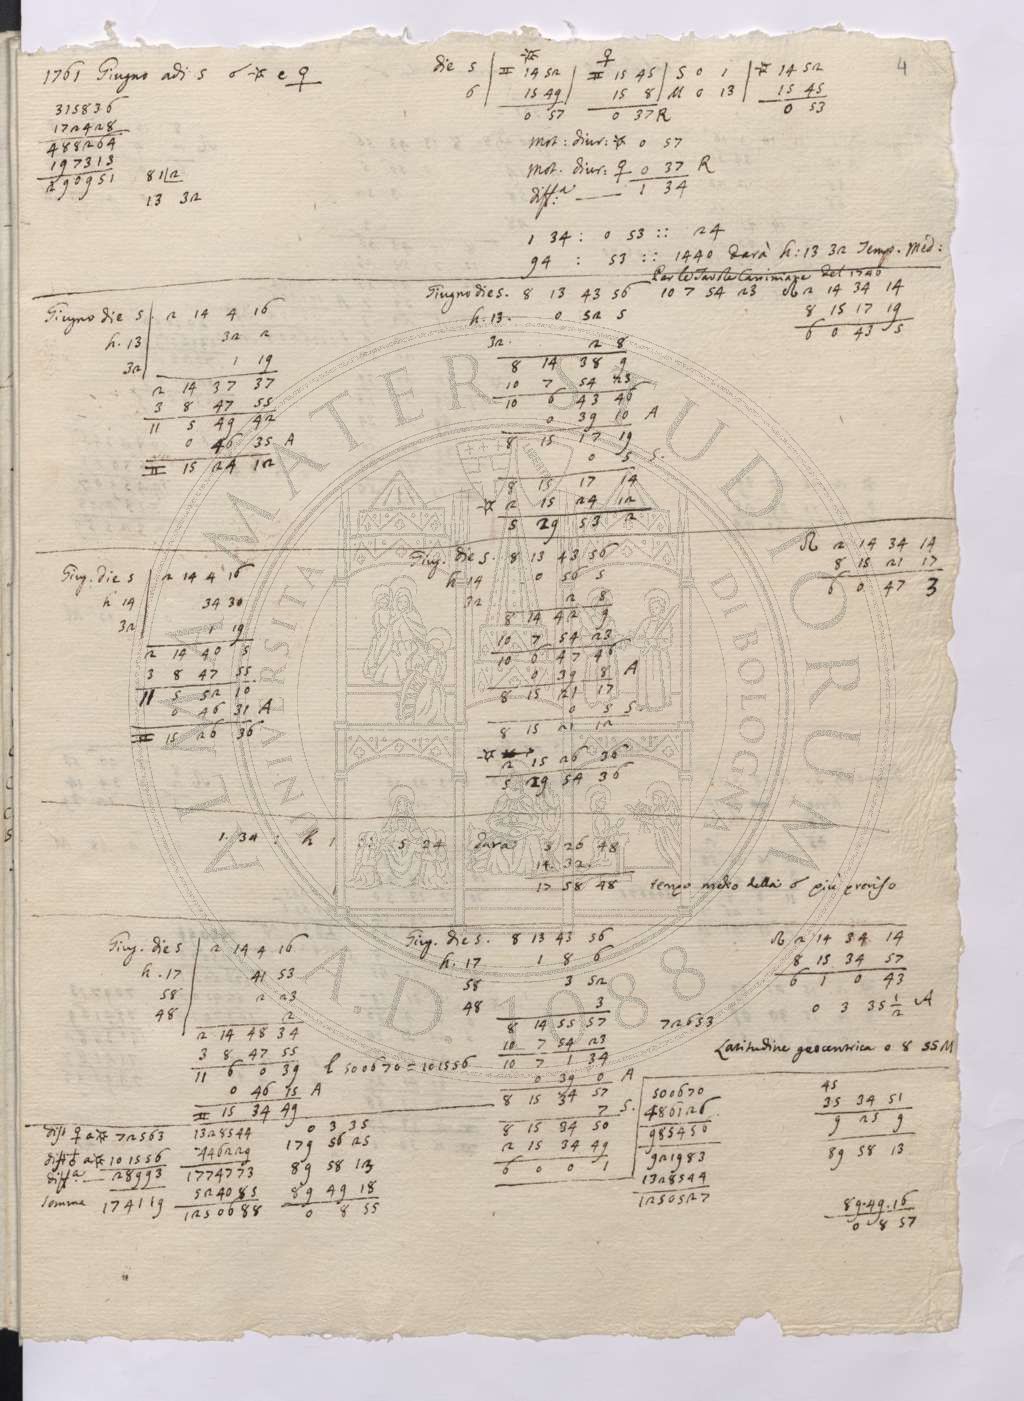 4
1761 Giugno adi 5 ☌ ☀ e ♀
315836
172428
488264
197313
290951
81|2
13 32
die 5 | ☀ ♊ 14 52 | ♀ ♊ 15 45 | S 0 1 | ☀ 14 52
6 | 15 49 | 15 8 | M 0 13 | 15 45
0 57 0 37 R 0 53
Mot: diur: ☀ 0 57
Mot. diur: ♀ 0 37 R
diff.ª 1 34
1 34 : 0 53 :: 24
94 : 53 :: 1440 darà h: 13 32 Temp. Med:
Par le Tavole Cassiniane del 1740
Giugno die 5 | 2 14 4 16
h. 13 32 2
32 1 19
2 14 37 37
3 8 47 55
11 5 49 42
0 46 35 A
♊ 15 24 12
Giugno die 5. 8 13 43 56 10 7 54 23
h. 13. 0 52 5
32. 2 8
8 14 38 9
10 7 54 23
10 6 43 46
0 39 10 A
8 15 17 19
0 5 S.
8 15 17 14
☀ 2 15 24 12
5 29 53 2
☊ 2 14 34 14
8 15 17 19
6 0 43 5
Giug. die 5 | 2 14 4 16
h 14 34 30
32 1 19
2 14 40 5
3 8 47 55
11 5 52 10
0 46 31 A
♊ 15 26 36
Giug. die 5. 8 13 43 56
h 14 0 56 5
32 2 8
8 14 42 9
10 7 54 23
10 6 47 46
0 39 8 A
8 15 21 17
0 5 S.
8 15 21 12
☀ 2 15 26 36
5 29 54 36
☊ 2 14 34 14
8 15 21 17
6 0 47 3
1. 34 : h 1 :: 5 24 darà 3 26 48
14. 32.
17 58 48 tempo medio della ☌ più preciso
Giug. die 5 | 2 14 4 16
h. 17 41 53
58 2 23
48 2
2 14 48 34
3 8 47 55
11 6 0 39
0 46 15 A
♊ 15 34 49
l 500670 = 101556
Giug. die 5. 8 13 43 56
h. 17 1 8 6
58 3 52
48 3
8 14 55 57
10 7 54 23
10 7 1 34
0 39 0 A
8 15 34 57
7 S.
8 15 34 50
2 15 34 49
6 0 0 1
☊ 2 14 34 14
8 15 34 57
6 1 0 43
72653 0 3 35 1/2 A
Latitudine geocentrica 0 8 55 M
500670
480126
985450
921983
1328544
1250527
45
35 34 51
9 25 9
89 58 13
89.49.16
0 8 57
dist ♀ a ☀ 72563
dist ♁ a ☀ 101556
diff.ª 28993
somma 174119
1328544
446229
1774773
524085
1250688
0 3 35
179 56 25
89 58 13
89 49 18
0 8 55
ALMA MATER STUDIORUM
UNIVERSITA DI BOLOGNA
A.D. 1088